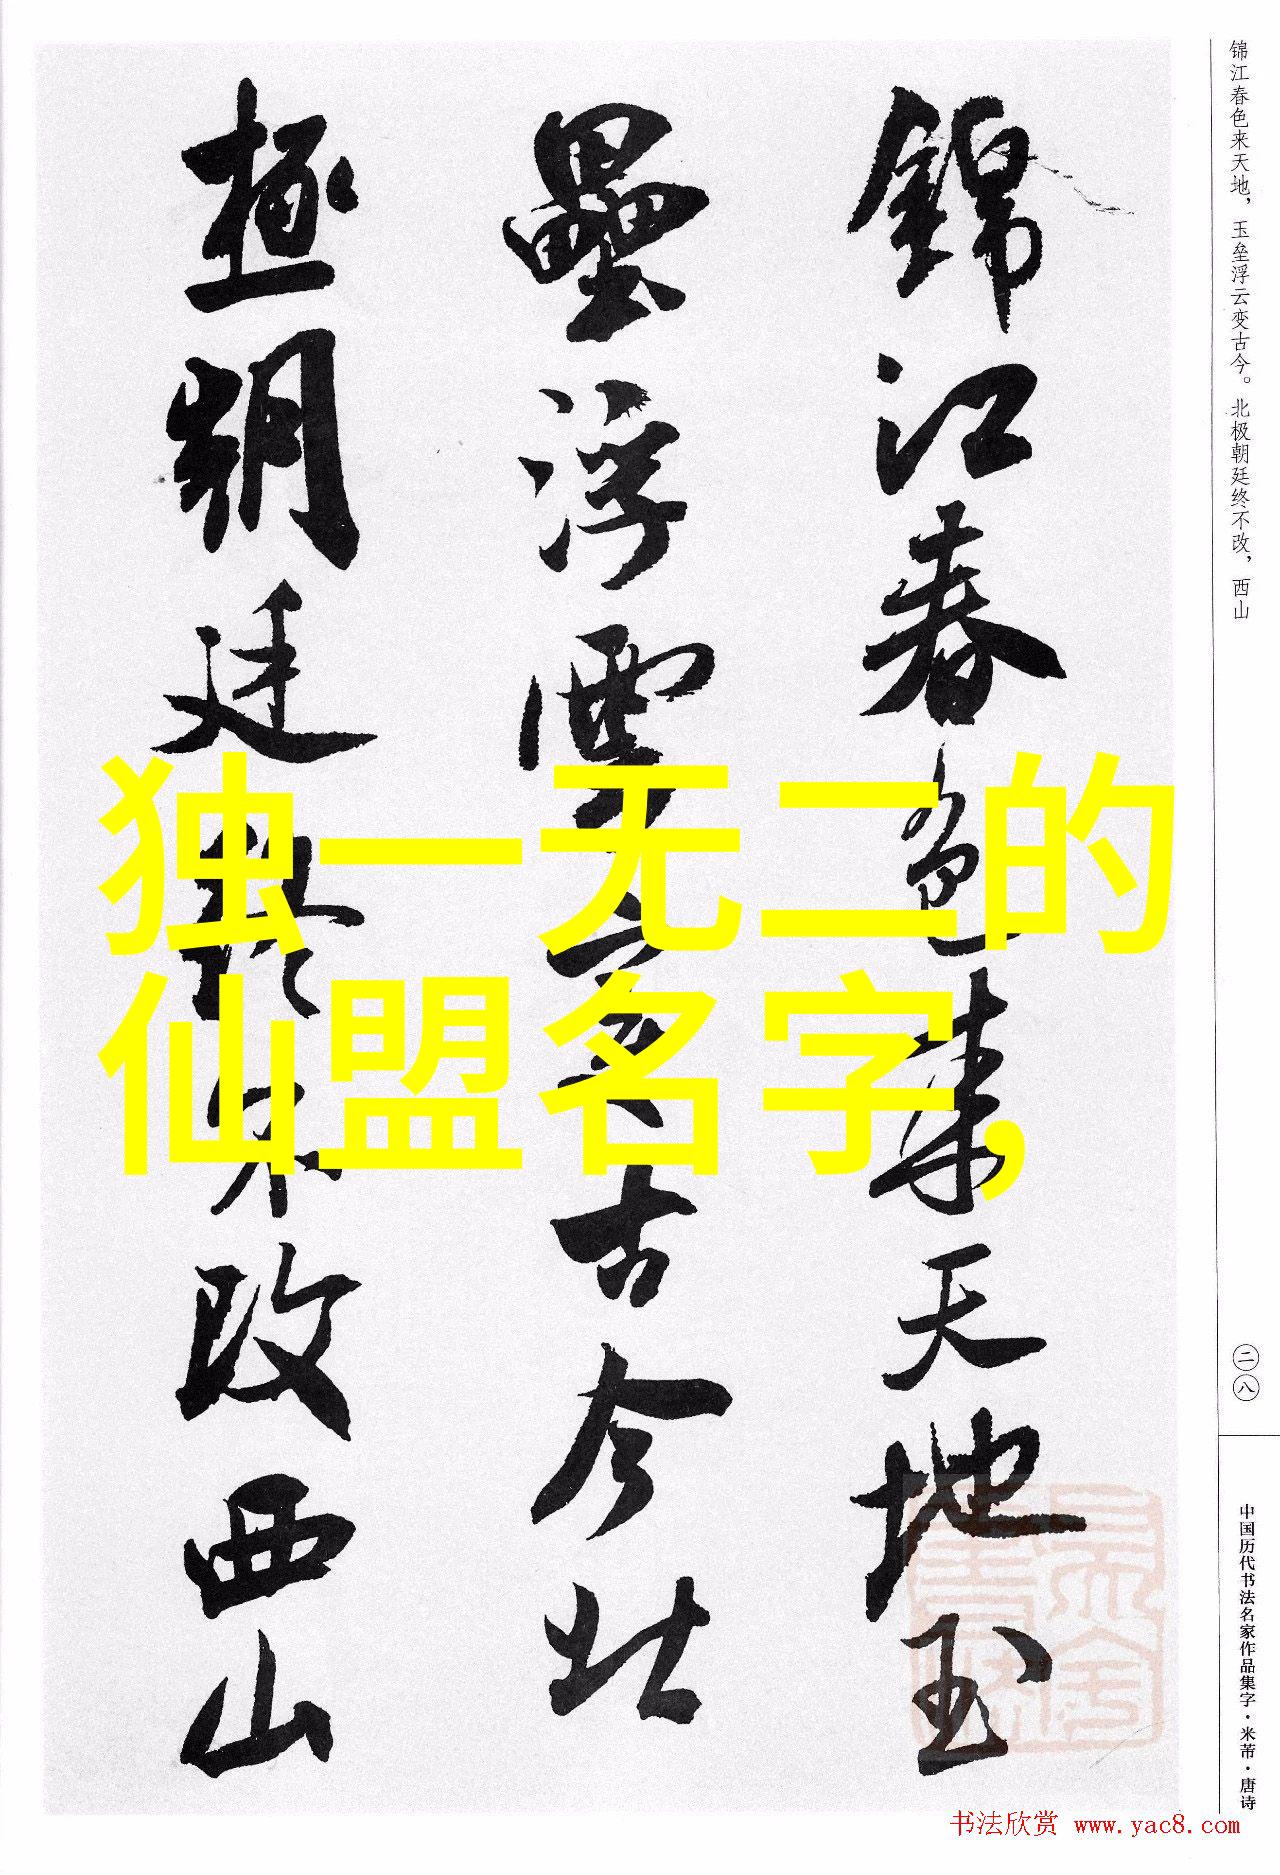 錦江春色来天地玉
壘浮雲變古今北
極朝廷終不改西山
独一无二的
仙盟名字,
锦江春色来天地，玉垒浮云变古今。北极朝廷终不改，西山
二八
中国历代书法名家作品集字·米芾·唐诗
书法欣赏 www.yac8.com